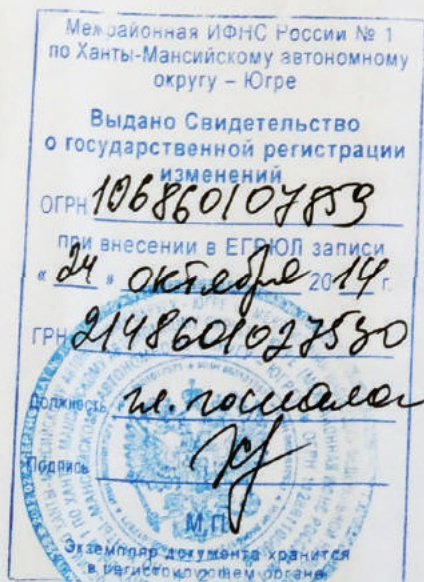 Межрайонная ИФНС России № 1
по Ханты-Мансийскому автономному
округу – Югре
Выдано Свидетельство
о государственной регистрации
изменений
ОГРН 106860107859
при внесении в ЕГРЮЛ записи
« 24 » октября 2014 г.
ГРН 2148601027530
Должность гл.
Подпись
М.П.
Экземпляр документа хранится
в регистрирующем органе